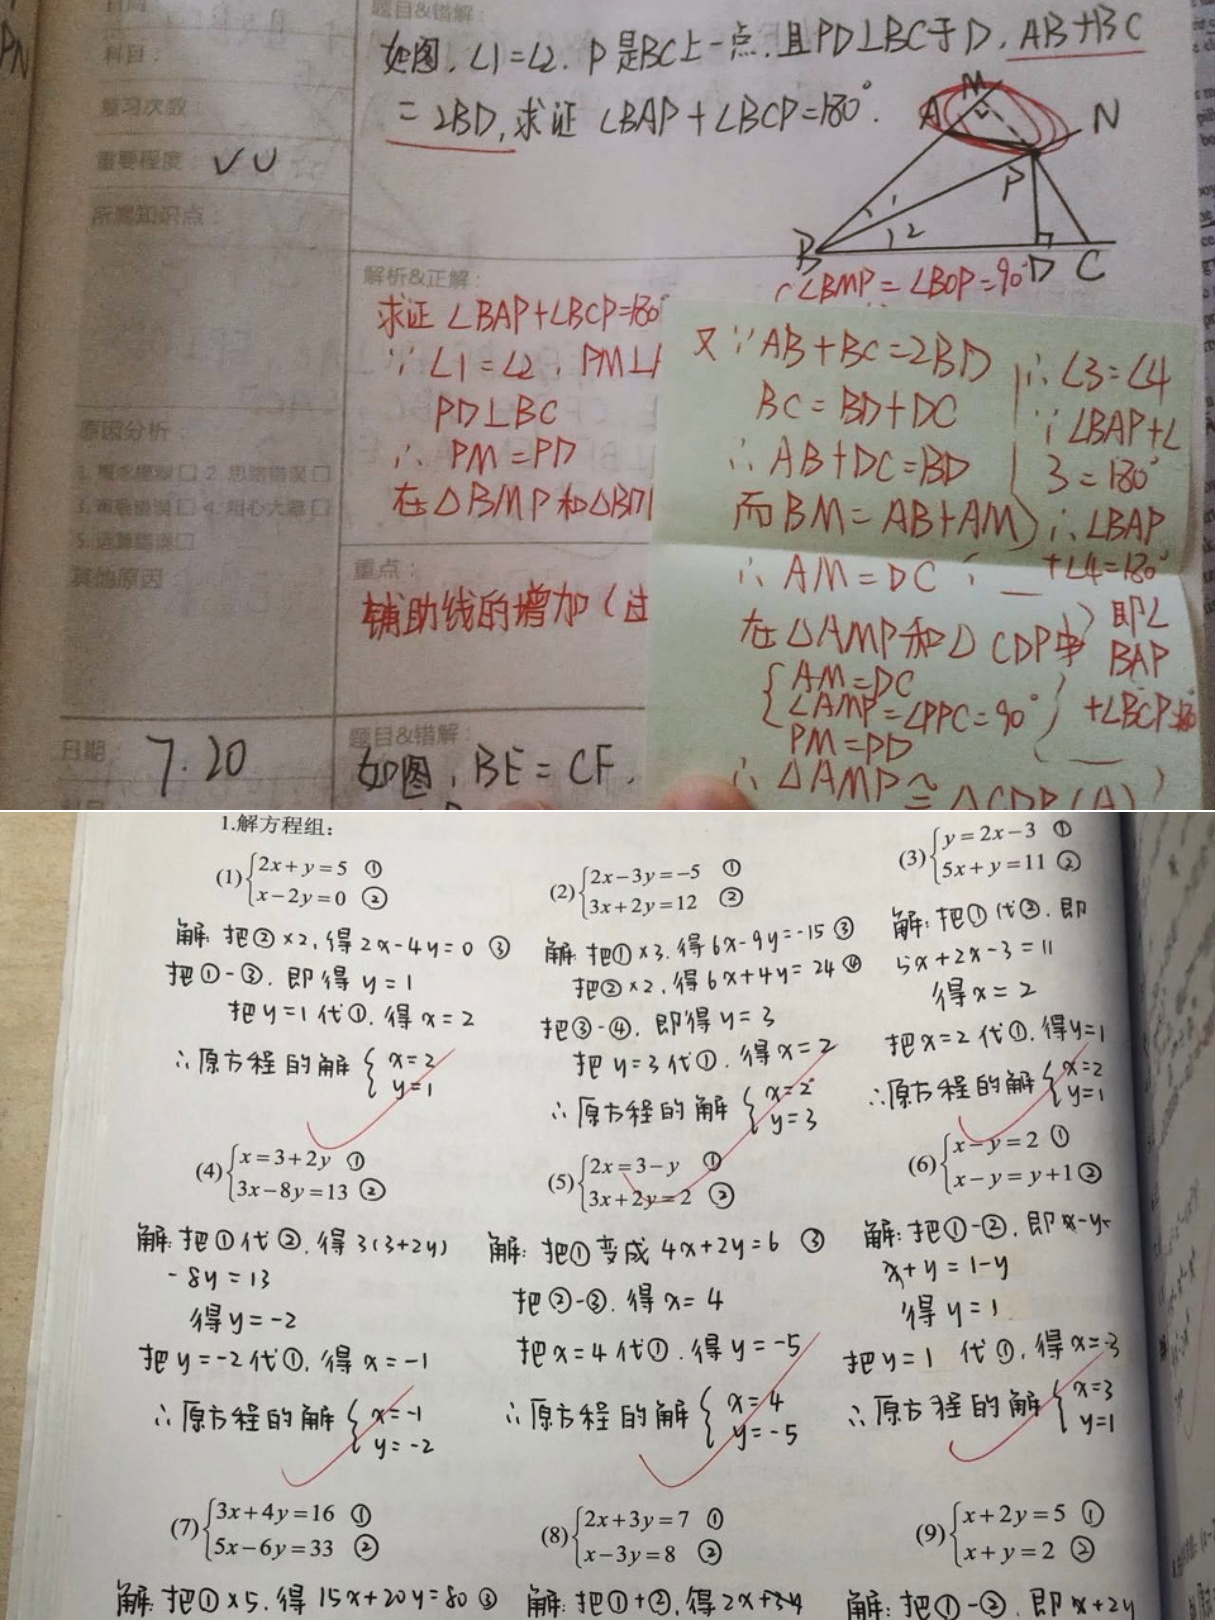 PN
科目：
题目&错解：
如图，∠1=∠2，P是BC上一点，且PD⊥BC于D，AB+BC
=2BD，求证 ∠BAP+∠BCP=180°.
复习次数
重要程度：
所需知识点：
A M N
P
1
2
B D C
解析&正解：
∠BMP=∠BDP=90°
求证 ∠BAP+∠BCP=180°
∵ ∠1=∠2，PM⊥
PD⊥BC
∴ PM=PD
在△BMP和△BD
又∵AB+BC=2BD
BC=BD+DC
∴AB+DC=BD
而BM=AB+AM
∴AM=DC
在△AMP和△CDP中
{AM=DC
∠AMP=∠PPC=90°
PM=PD
∴△AMP≌△CDP(A)
∴∠3=∠4
∵∠BAP+∠
3=180°
∴∠BAP
+∠4=180°
即∠
BAP
+∠BCP=180°
原因分析：
1. 概念模糊□ 2. 思路错误□
3. 审题错误□ 4. 粗心大意□
5. 运算错误□
其他原因：
重点：
辅助线的增加（过
日期：7.20
题目&错解：
如图，BE=CF，
1.解方程组：
(1){2x+y=5 ①
x-2y=0 ②
解：把②×2，得2x-4y=0 ③
把①-③，即得y=1
把y=1代①，得x=2
∴原方程的解{x=2
y=1
(2){2x-3y=-5 ①
3x+2y=12 ②
解：把①×3，得6x-9y=-15 ③
把②×2，得6x+4y=24 ④
把③-④，即得y=3
把y=3代①，得x=2
∴原方程的解{x=2
y=3
(3){y=2x-3 ①
5x+y=11 ②
解：把①代②，即
5x+2x-3=11
得x=2
把x=2代①，得y=1
∴原方程的解{x=2
y=1
(4){x=3+2y ①
3x-8y=13 ②
解：把①代②，得3(3+2y)
-8y=13
得y=-2
把y=-2代①，得x=-1
∴原方程的解{x=-1
y=-2
(5){2x=3-y ①
3x+2y=2 ②
解：把①变成4x+2y=6 ③
把②-③，得x=4
把x=4代①，得y=-5
∴原方程的解{x=4
y=-5
(6){x-y=2 ①
x-y=y+1 ②
解：把①-②，即x-y-
x+y=1-y
得y=1
把y=1代①，得x=3
∴原方程的解{x=3
y=1
(7){3x+4y=16 ①
5x-6y=33 ②
解：把①×5，得15x+20y=80 ③
(8){2x+3y=7 ①
x-3y=8 ②
解：把①+②，得2x+3y
(9){x+2y=5 ①
x+y=2 ②
解：把①-②，即x+2y